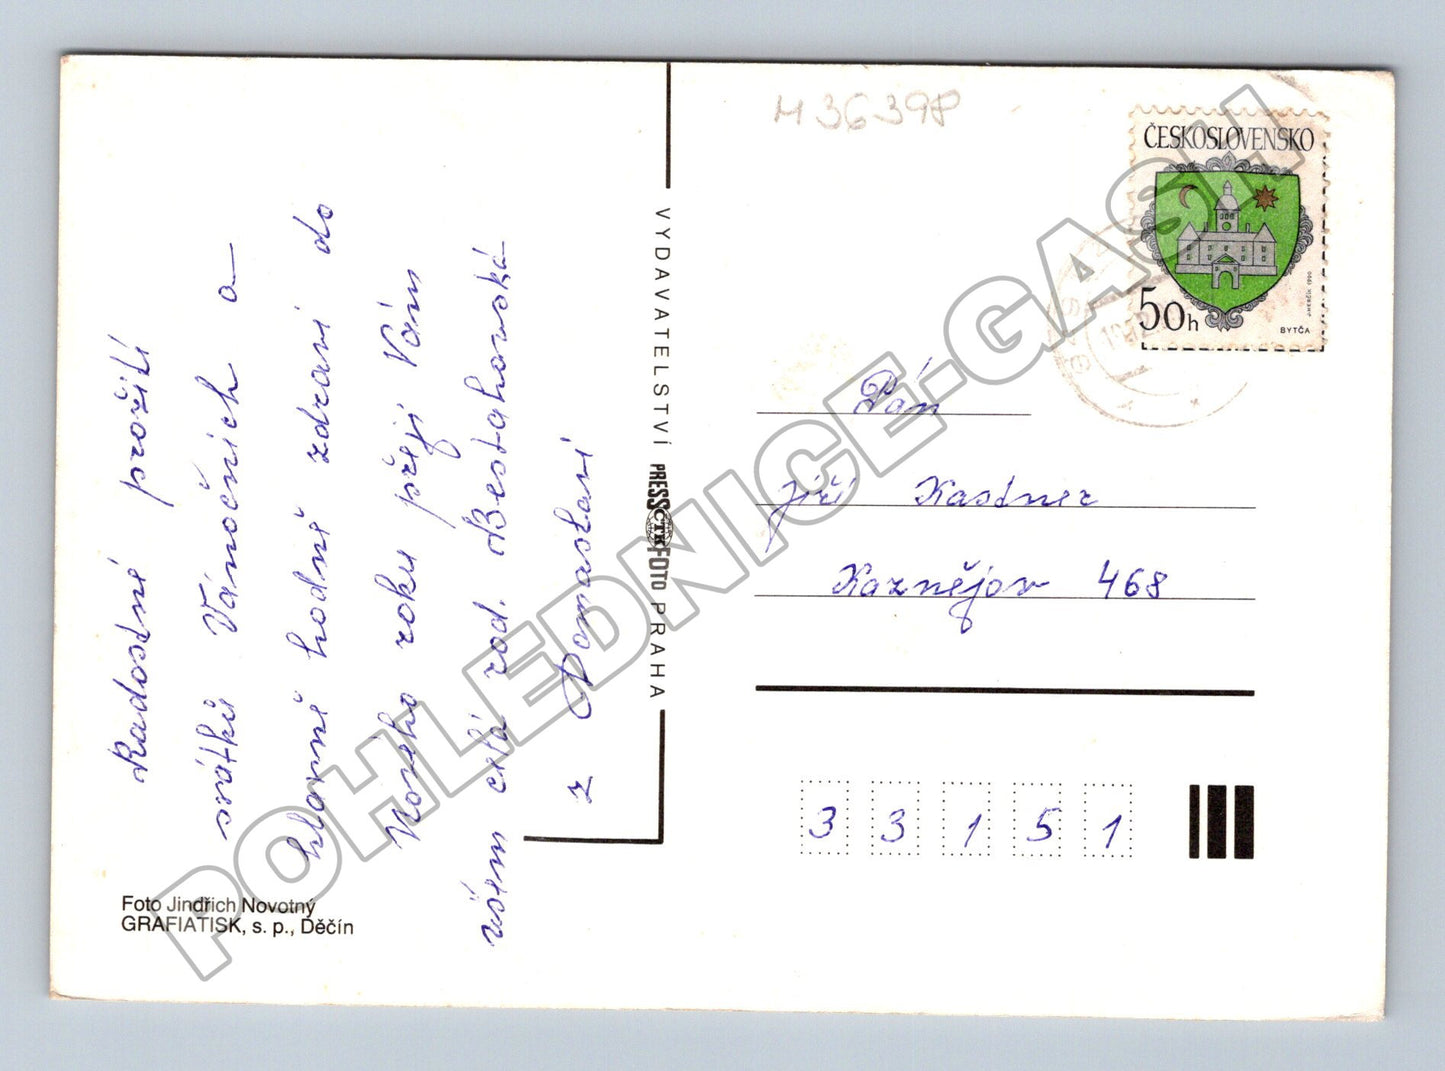 Radostné prožití
svátků Vánočních a
hlavně hodně zdraví do
Nového roku přejí Vám
všem celá rod. Bestahovská
z Domaslaví
Foto Jindřich Novotný
GRAFIATISK, s. p., Děčín
VYDAVATELSTVÍ PRESSFOTO ČTK PRAHA
M 36398
ČESKOSLOVENSKO
50h
BYTČA
Pán
Jiří Kastner
Kaznějov 468
3 3 1 5 1
POHLEDNICE-GASH